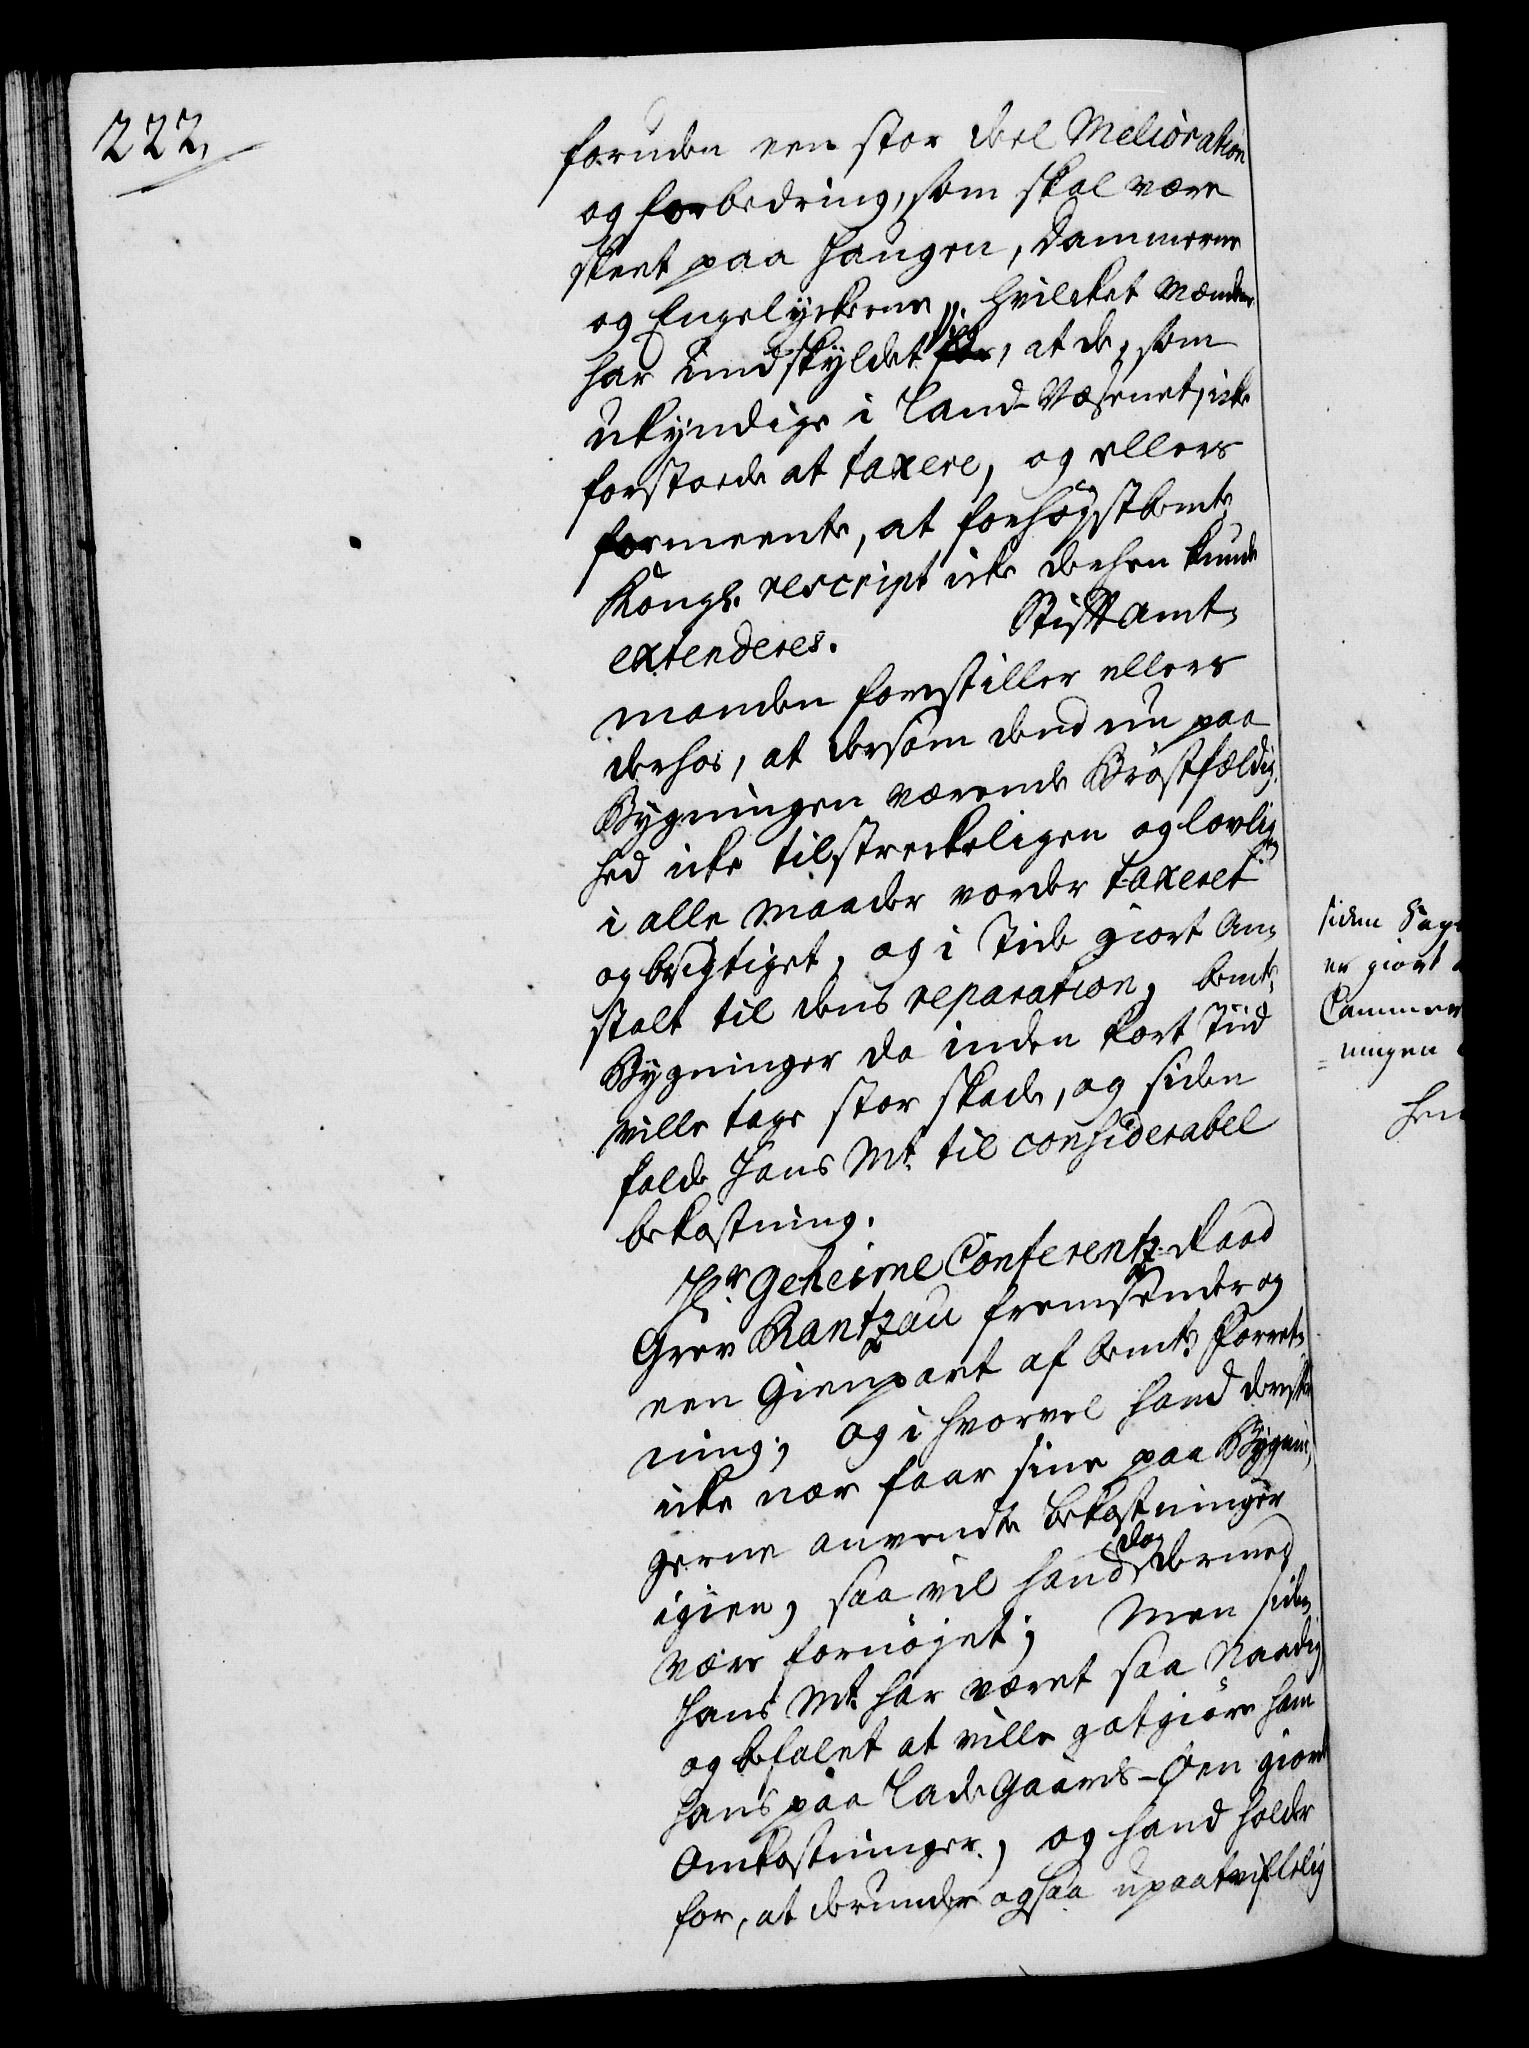 222,
foruden een stor deel Melioration
og forbedring, som skal være
skeet paa Haugen, Dammerne
og Engelyckerne, hvilcket mændene
har undskyldet sig for, at de, som
ukyndige i Land-Væsenet, icke
forstoede at taxere, og ellers
formeente, at forhøystbemte
Kongl. rescript icke derhen kunde
extenderes. Stiftamt-
manden forestiller ellers
derhos, at dersom dend nu paa
Bygningen værende Bröstfældig-
hed icke tilstreckeligen og lovlig
i alle maader vorder taxeret
og besigtiget, og i Tide giort An-
stalt til dens reparation, bemte
Bygninger da inden kort Tiid
ville tage stor skade, og siden
falde Hans Mt. til considerabel
bekostning.
Hr. Geheime Conferentz-Raad
Grev Rantzau fremsender og
een Gienpart af bemte Forret-
ning, og i hvorvel hand derefter
icke nær faar sine paa Bygnin-
gerne anvendte bekostninger
igien, saa vil hand dog dermed
være fornøjet; Men siden
Hans Mt. har været saa Naadig
og befalet at ville gotgiöre ham
hans paa Lade Gaards-Öen giorte
Omkostninger, og hand holder
for, at derunder ogsaa upaatvifflelig
siden Sag
er giort
Cammer
ningen